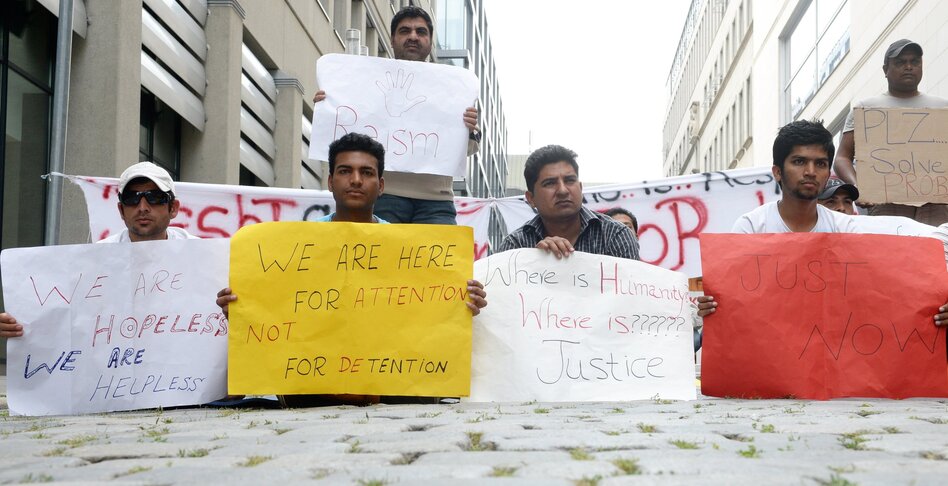 Racism
PLZ....
Solve
PROB
WE ARE
HOPELESS
WE ARE
HELPLESS
WE ARE HERE
FOR ATTENTION
NOT
FOR DETENTION
Where is Humanity
Where is??????
Justice
JUST
NOW